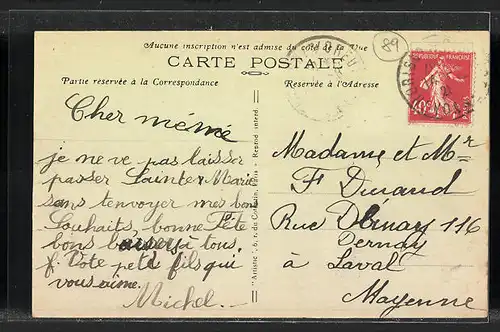 Aucune inscription n'est admise du côté de la Vue
CARTE POSTALE
Partie réservée à la Correspondance
Réservée à l'Adresse
89
REPUBLIQUE FRANÇAISE
40c
Cher mémé
je ne ve pas laisser
passer Sainte Marie
sans tenvoyer mes bons
Souhaits, bonne Fête
bons baisers à tous.
f. Pôte petit fils qui
vous aime.
Michel
Madame et Mr
F Durand
Rue 116
à Laval
Mayenne